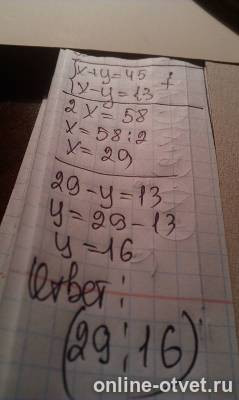 {x+y=45 +
{x-y=13
2x=58
x=58:2
x=29
29-y=13
y=29-13
y=16
Ответ:
(29;16)
online-otvet.ru